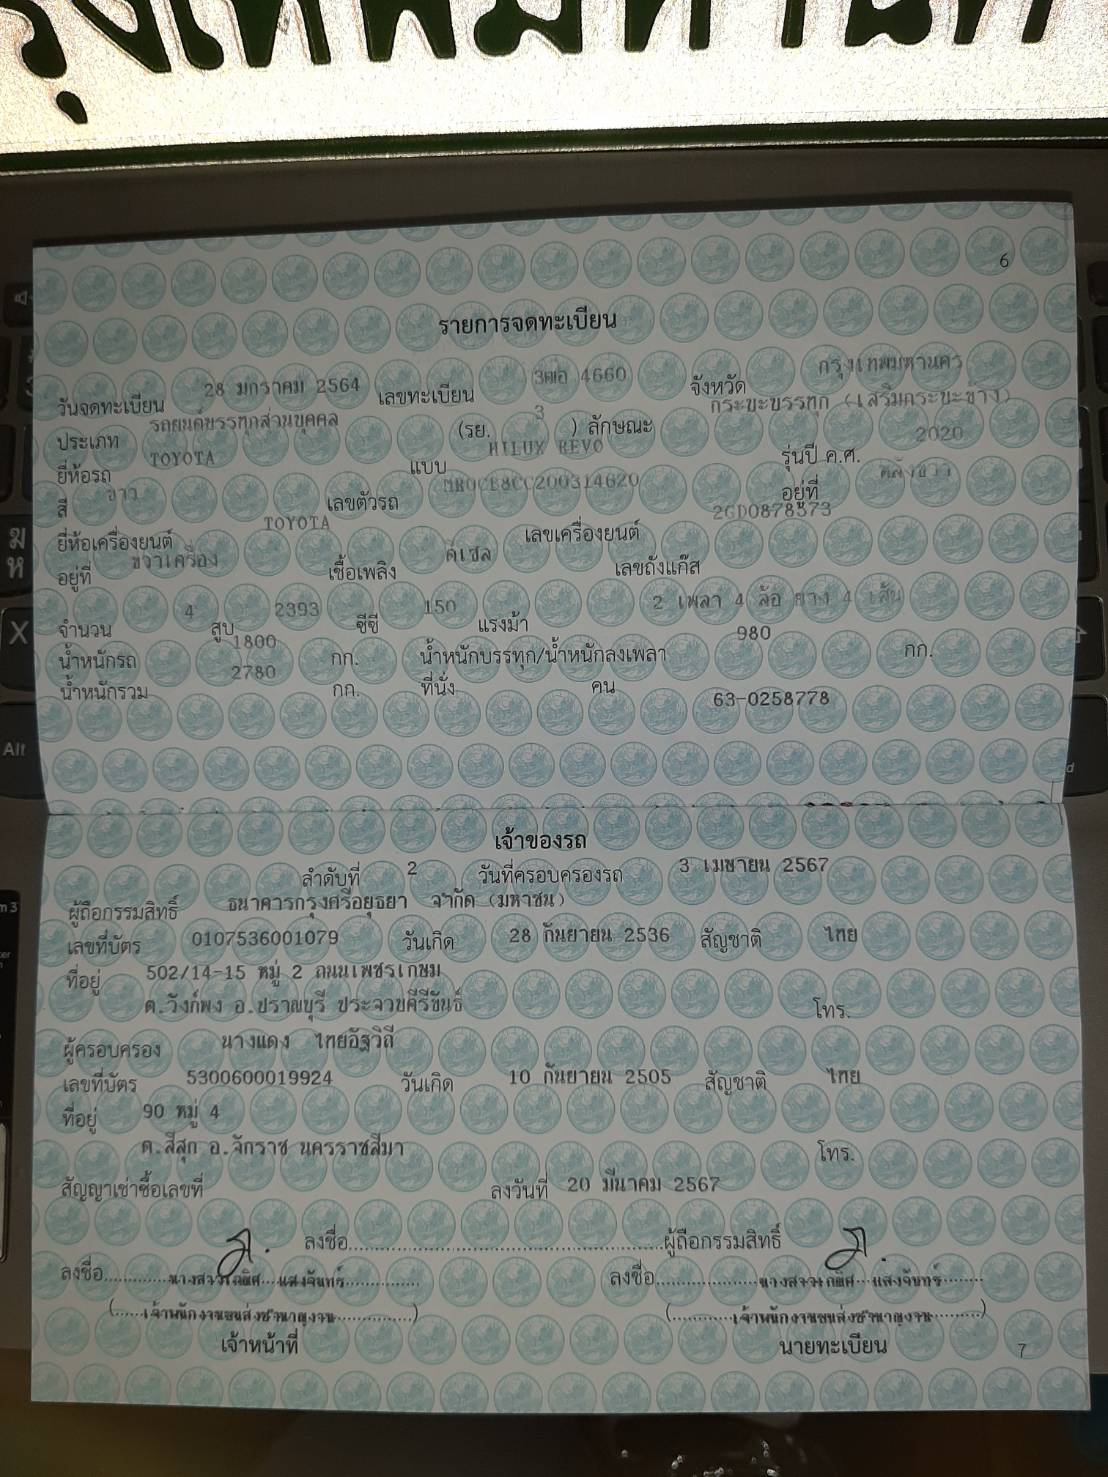 กรุงเทพมหานคร
6
รายการจดทะเบียน
วันจดทะเบียน 28 มกราคม 2564 เลขทะเบียน 3ฒอ 4660 จังหวัด กรุงเทพมหานคร
ประเภท รถยนต์บรรทุกส่วนบุคคล (รย. 3 ) ลักษณะ กระบะบรรทุก (เสริมกระบะข้าง)
ยี่ห้อรถ TOYOTA แบบ HILUX REVO รุ่นปี ค.ศ. 2020
สี ขาว เลขตัวรถ MR0CB8CC200314620 อยู่ที่
ยี่ห้อเครื่องยนต์ TOYOTA เลขเครื่องยนต์ 2GD0878373
อยู่ที่ ขวาเครื่อง เชื้อเพลิง ดีเซล เลขถังแก๊ส
จำนวน 4 สูบ 2393 ซีซี 150 แรงม้า 2 เพลา 4 ล้อ ยาง 4 เส้น
น้ำหนักรถ 1800 กก. น้ำหนักบรรทุก/น้ำหนักลงเพลา 980 กก.
น้ำหนักรวม 2780 กก. ที่นั่ง คน 63-0258778
เจ้าของรถ
ลำดับที่ 2 วันที่ครอบครองรถ 3 เมษายน 2567
ผู้ถือกรรมสิทธิ์ ธนาคารกรุงศรีอยุธยา จำกัด (มหาชน)
เลขที่บัตร 0107536001079 วันเกิด 28 กันยายน 2536 สัญชาติ ไทย
ที่อยู่ 502/14-15 หมู่ 2 ถนนเพชรเกษม
ต.วังก์พง อ.ปราณบุรี ประจวบคีรีขันธ์ โทร.
ผู้ครอบครอง นางแดง ไทยอัฐวิถี
เลขที่บัตร 5300600019924 วันเกิด 10 กันยายน 2505 สัญชาติ ไทย
ที่อยู่ 90 หมู่ 4
ต.สีสุก อ.จักราช นครราชสีมา โทร.
สัญญาเช่าซื้อเลขที่ ลงวันที่ 20 มีนาคม 2567
ลงชื่อ ผู้ถือกรรมสิทธิ์
ลงชื่อ นางสาว แสงจันทร์ ลงชื่อ นางสาว แสงจันทร์
(เจ้าพนักงานขนส่งชำนาญงาน) (เจ้าพนักงานขนส่งชำนาญงาน)
เจ้าหน้าที่ นายทะเบียน 7